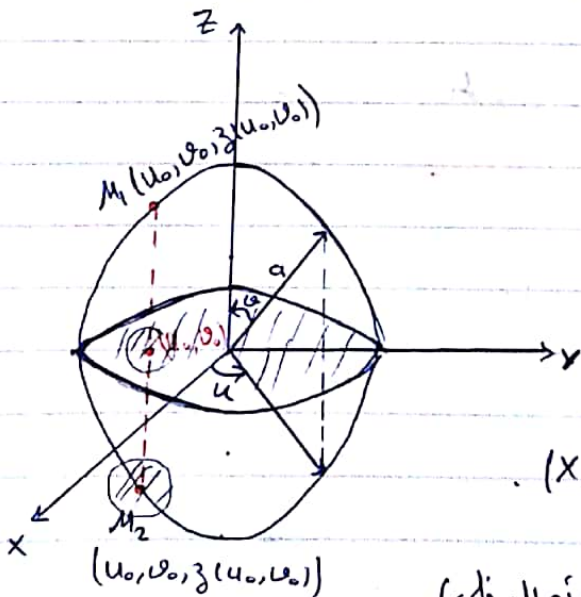 Z
M₁(u₀,v₀,z(u₀,v₀))
a
v
(u₀,v₀)
y
u
(X
X
M₂
(u₀,v₀,z(u₀,v₀))